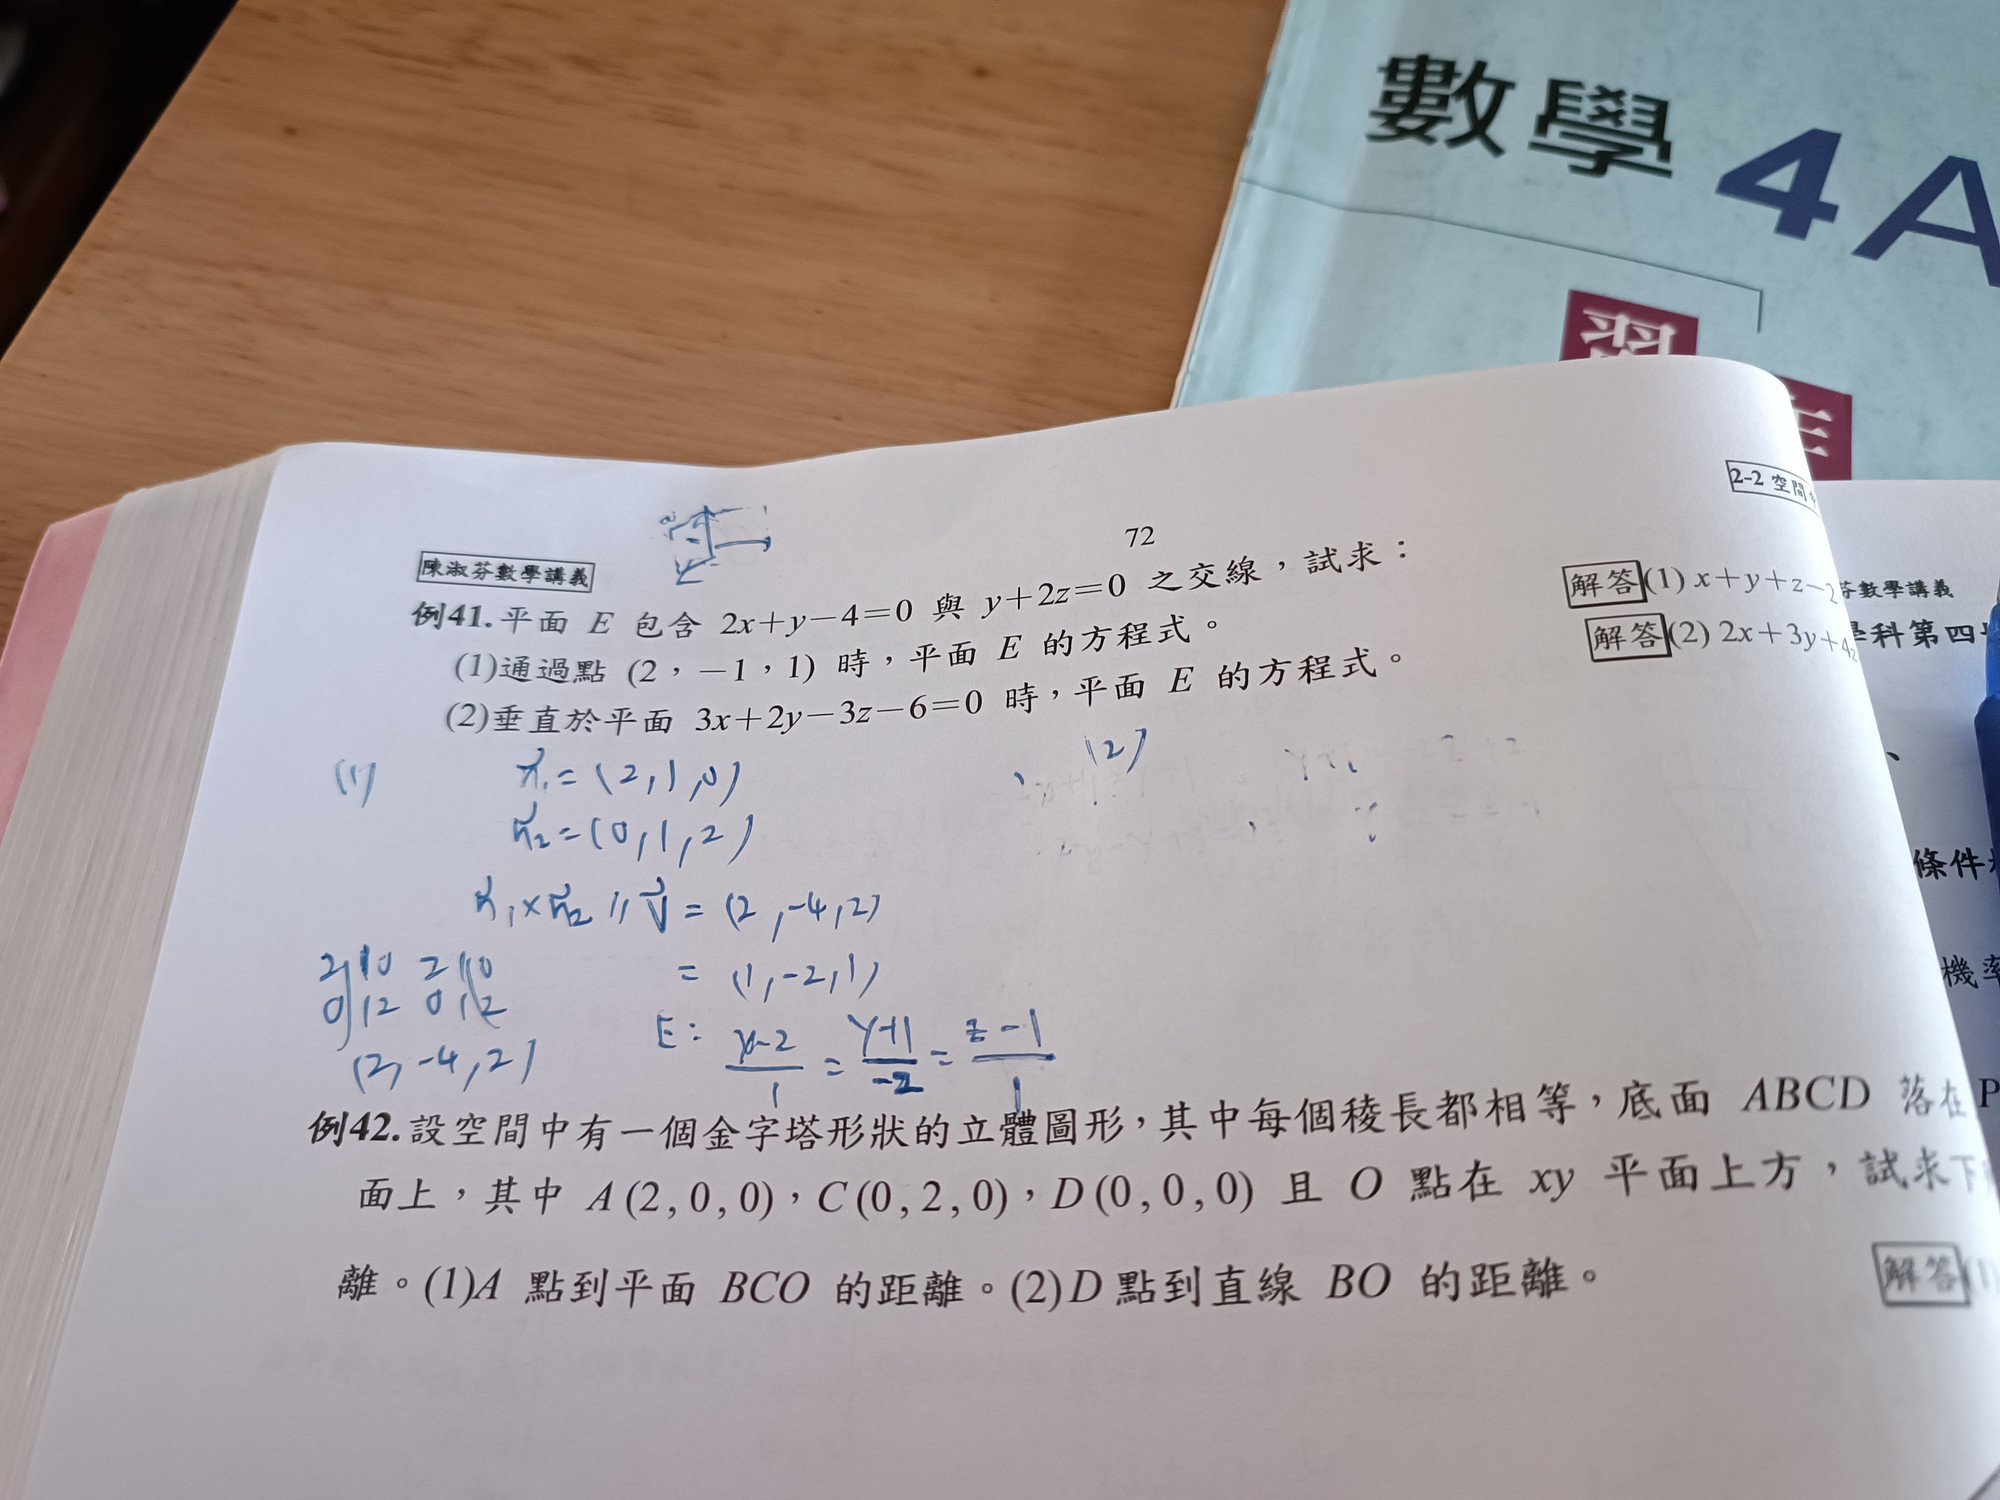 數學 4A
習
2-2 空間
72
陳淑芬數學講義
例41.平面 E 包含 2x+y-4=0 與 y+2z=0 之交線，試求：
(1)通過點 (2，-1，1) 時，平面 E 的方程式。
(2)垂直於平面 3x+2y-3z-6=0 時，平面 E 的方程式。
解答(1) x+y+z-2
解答(2) 2x+3y+4z
芬數學講義
學科第四
條件
機率
(1)
n⃗₁=(2,1,0)
n⃗₂=(0,1,2)
n⃗₁×n⃗₂ // v⃗ = (2,-4,2)
= (1,-2,1)
2 1 0 2 1 0
0 1 2 0 1 2
(2,-4,2)
E: x-2/1 = y+1/-2 = z-1/1
(2)
例42.設空間中有一個金字塔形狀的立體圖形，其中每個稜長都相等，底面 ABCD 落在
面上，其中 A(2,0,0)，C(0,2,0)，D(0,0,0) 且 O 點在 xy 平面上方，試求下
離。(1)A 點到平面 BCO 的距離。(2)D點到直線 BO 的距離。
解答(1)